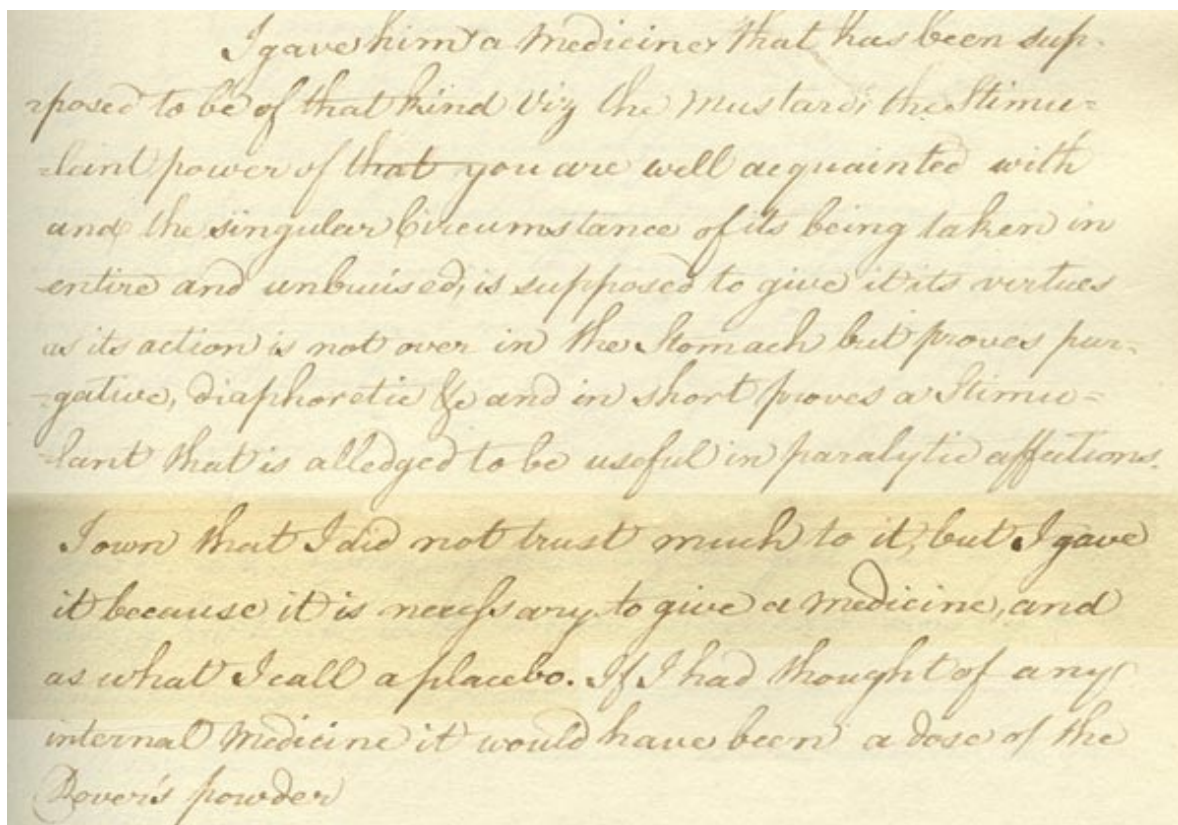 I gave him a Medicine that has been sup-
-posed to be of that kind Viz the Mustard; the Stimu=
-lant power of that you are well acquainted with
and the singular Circumstance of its being taken in
entire and unbruised, is supposed to give it its virtues
as its action is not over in the Stomach but proves pur=
-gative, diaphoretic &c and in short proves a Stimu=
-lant that is alledged to be useful in paralytic affections.
I own that I did not trust much to it, but I gave
it because it is necessary to give a medicine, and
as what I call a placebo. If I had thought of any
internal Medicine it would have been a dose of the
Dover's powder